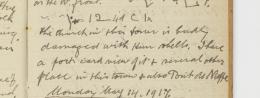 the church in this town is badly
damaged with Hun shells. I have
a post card view of it & several other
place in this town & also Pont de Nieppe
Monday May 14. 1917